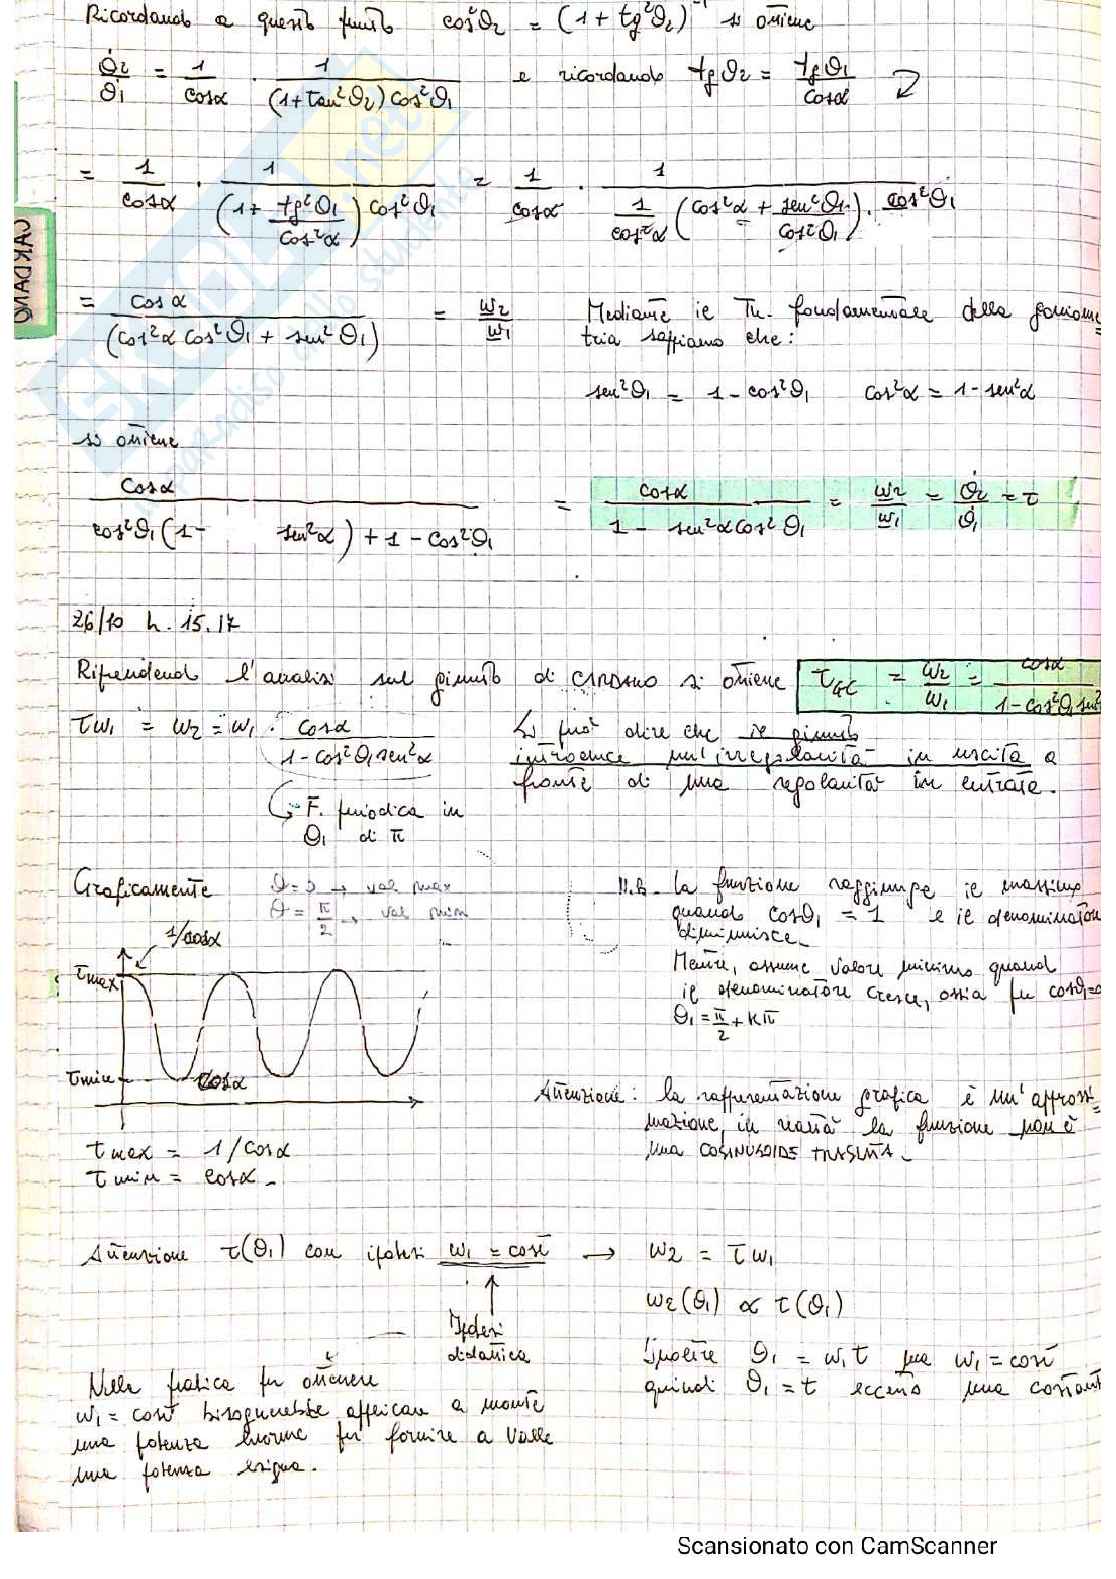 Ricordando a questo punto cos²θ₂ = (1 + tg²θ₂)⁻¹ si ottiene
θ̇₂/θ̇₁ = 1/cosα · 1/((1+tan²θ₂)cos²θ₁) e ricordando tgθ₂ = tgθ₁/cosα
= 1/cosα · 1/((1+ tg²θ₁/cos²α) cos²θ₁) = 1/cosα · 1/(1/cos²α (cos²α + sen²θ₁/cos²θ₁) · cos²θ₁)
CARDANO
= cosα/(cos²α cos²θ₁ + sen²θ₁) = w₂/w₁ Mediante il Th. fondamentale della goniome
tria sappiamo che:
sen²θ₁ = 1-cos²θ₁ cos²α = 1-sen²α
si ottiene
cosα/(cos²θ₁(1- sen²α) + 1 - cos²θ₁) = cosα/(1 - sen²α cos²θ₁) = w₂/w₁ = θ̇₂/θ̇₁ = τ
26/10 h. 15.17
Riprendendo l'analisi sul giunto di CARDANO si ottiene τGC = w₂/w₁ = cosα/(1-cos²θ₁sen²
τw₁ = w₂ = w₁ · cosα/(1-cos²θ₁sen²α) ↳ può dire che il giunto
introduce un'irregolarità in uscita a
fronte di una regolarità in entrata.
F. periodica in
θ₁ di π
Graficamente
θ=0 → val max
θ=π/2 → val min
N.B. La funzione raggiunge il massimo
quando cosθ₁ = 1 e il denominatore
diminuisce.
Mentre, assume valore minimo quando
il denominatore cresce, ossia per cosθ₁=0
θ₁ = π/2 + Kπ
1/cosα
τmax
τmin
cosα
Attenzione: la rappresentazione grafica è un'approssi-
mazione, in realtà la funzione non è
una COSINUSOIDE TRASLATA.
τmax = 1/cosα
τmin = cosα.
Attenzione τ(θ₁) con ipotesi w₁ = cost → w₂ = τw₁
w₂(θ₁) ∝ τ(θ₁)
Ipotesi
didattica
Inoltre θ₁ = w₁t ma w₁ = cost
quindi θ₁ = t eccetto una costant
Nella pratica per ottenere
w₁ = cost bisognerebbe applicare a monte
una potenza enorme per fornire a valle
una potenza esigua.
Scansionato con CamScanner